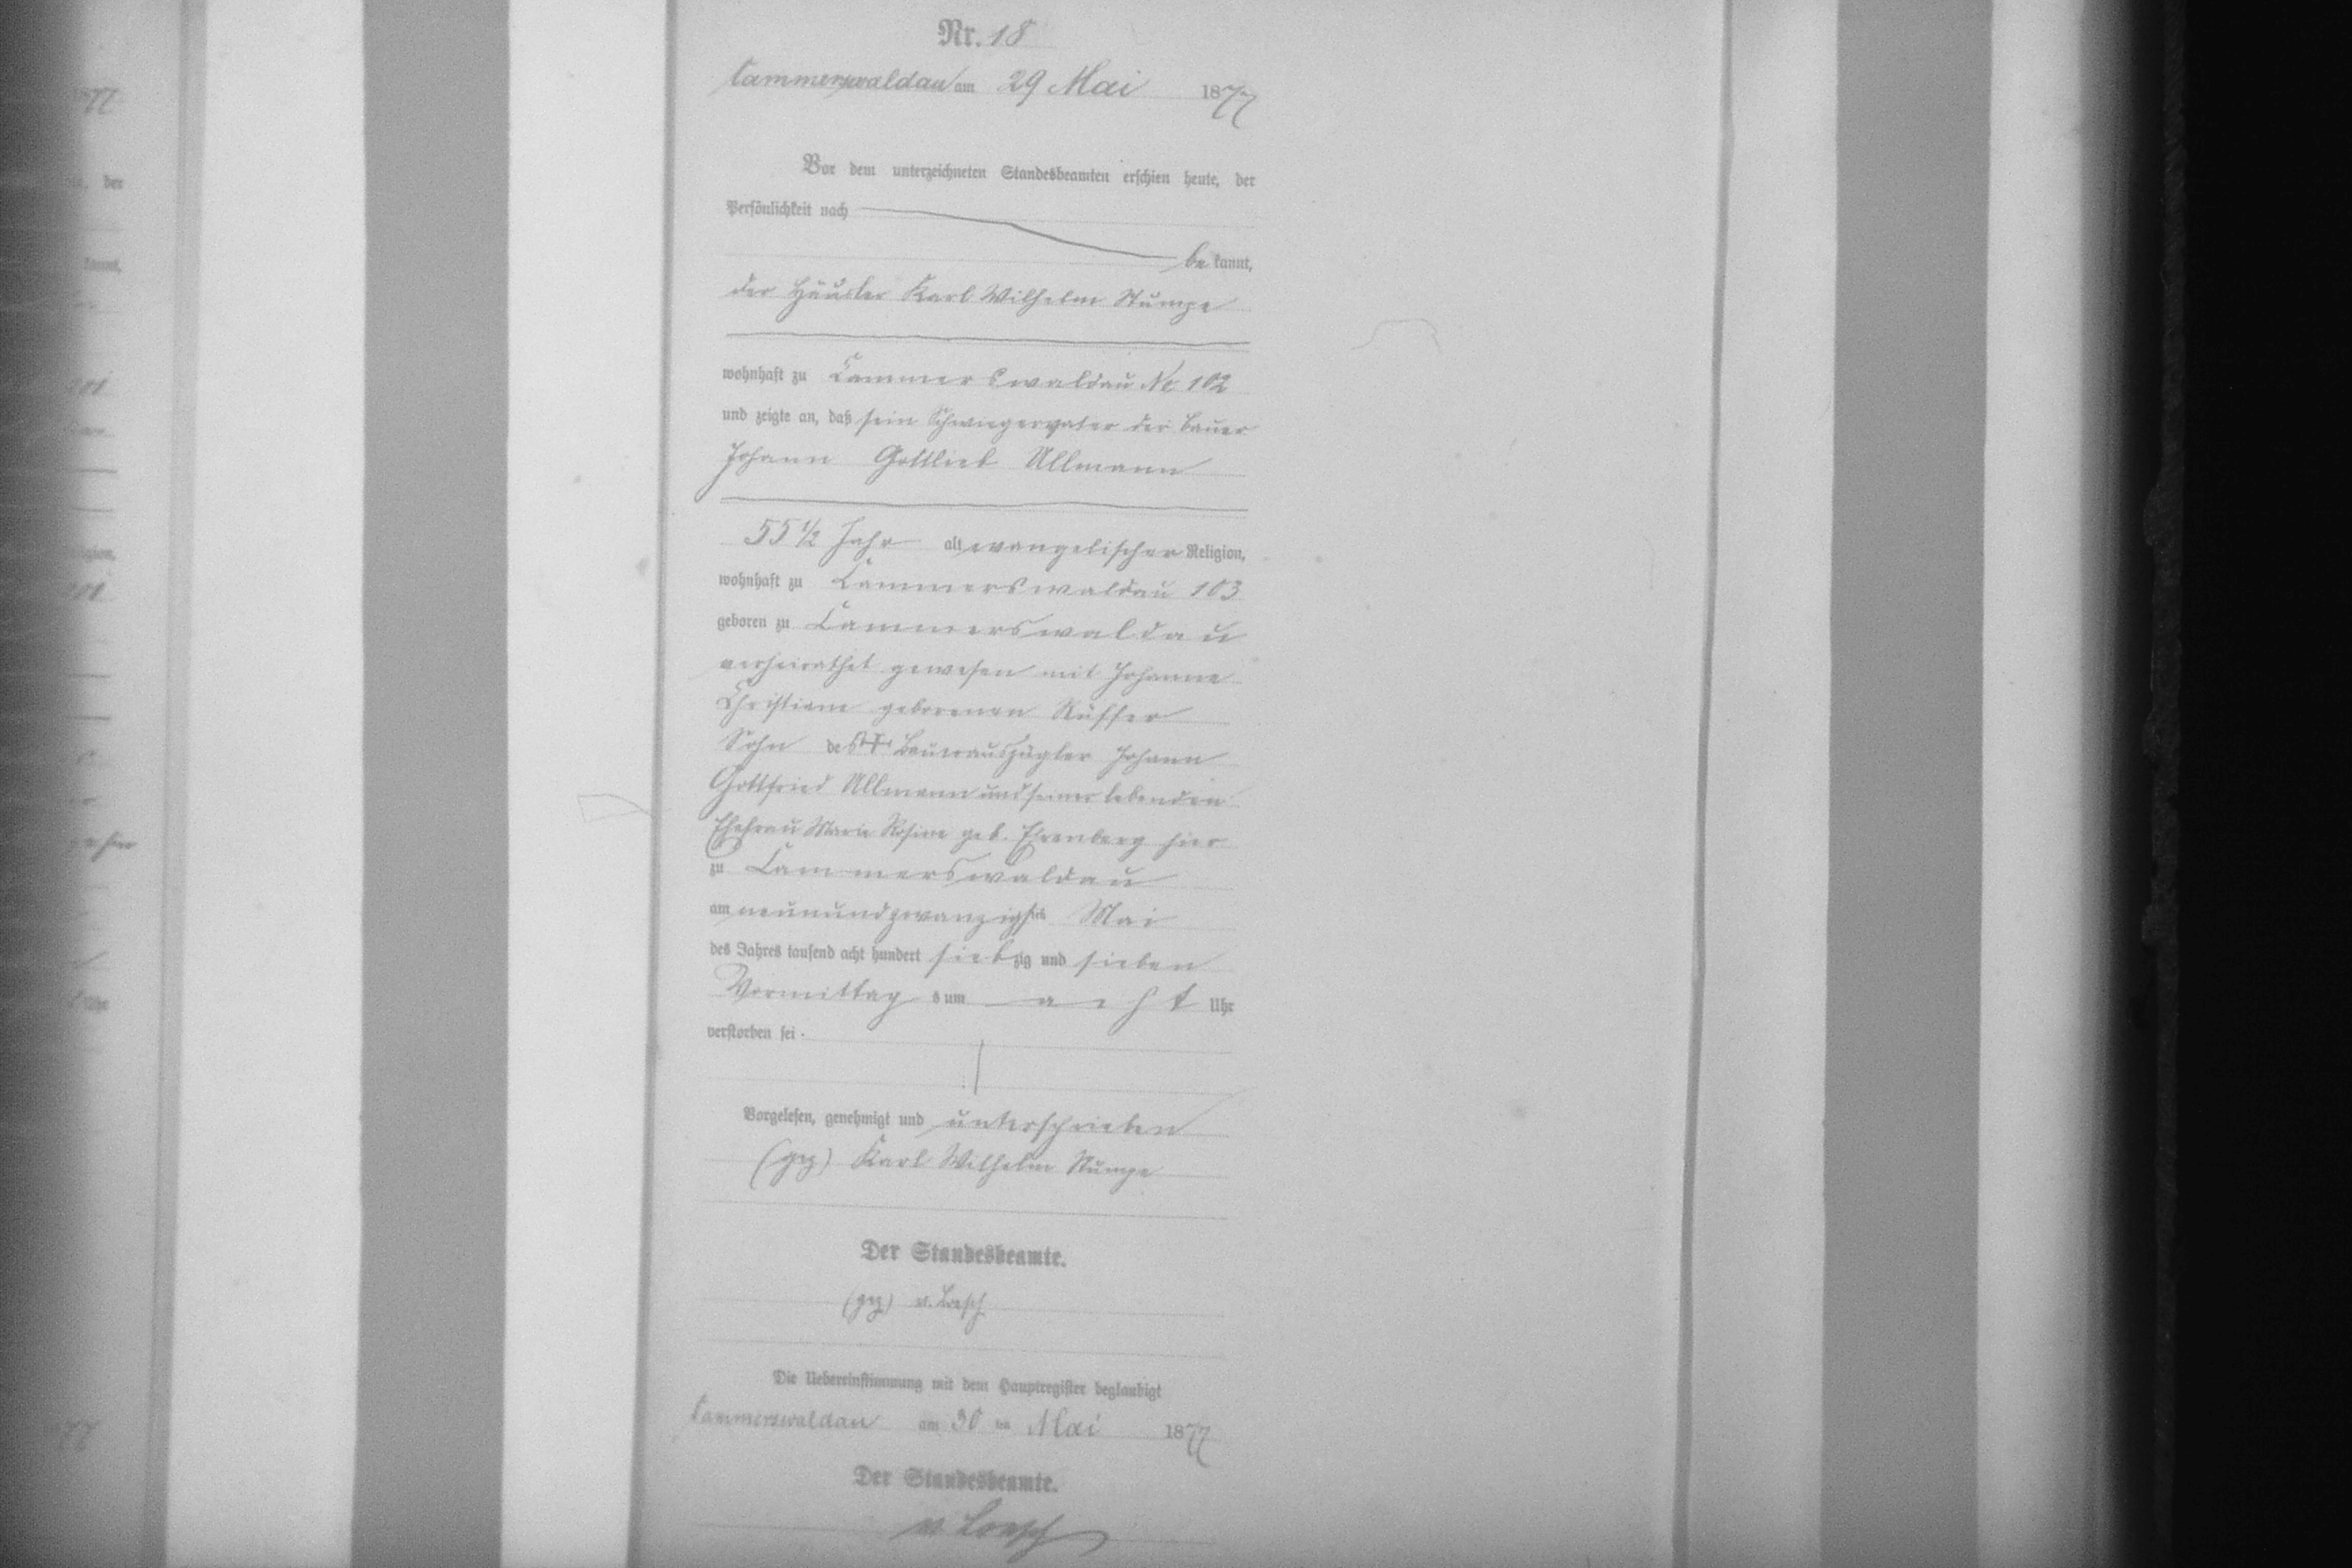 Nr. 18
Cammerswaldau am 29 Mai 1877
Vor dem unterzeichneten Standesbeamten erschien heute, der
Persönlichkeit nach
be kannt,
der Häusler Karl Wilhelm Stumpe
wohnhaft zu Cammerswaldau No 102
und zeigte an, daß sein Schwiegervater der Bauer
Johann Gottlieb Ullmann
55 1/2 Jahr alt evangelischer Religion,
wohnhaft zu Cammerswaldau 103
geboren zu Cammerswaldau
verheirathet gewesen mit Johanne
Christiane geborenen Rüffer
Sohn des † Bauerauszügler Johann
Gottfried Ullmann und seiner lebenden
Ehefrau Marie Rosine geb. Ehrenberg hier
zu Cammerswaldau
am neunundzwanzigsten Mai
des Jahres tausend acht hundert siebzig und sieben
Vormittags um acht Uhr
verstorben sei.
Vorgelesen, genehmigt und unterschrieben
(gez) Karl Wilhelm Stumpe
Der Standesbeamte.
(gez) v. Loesch
Die Uebereinstimmung mit dem Hauptregister beglaubigt
Cammerswaldau am 30 ten Mai 1877
Der Standesbeamte.
v. Loesch